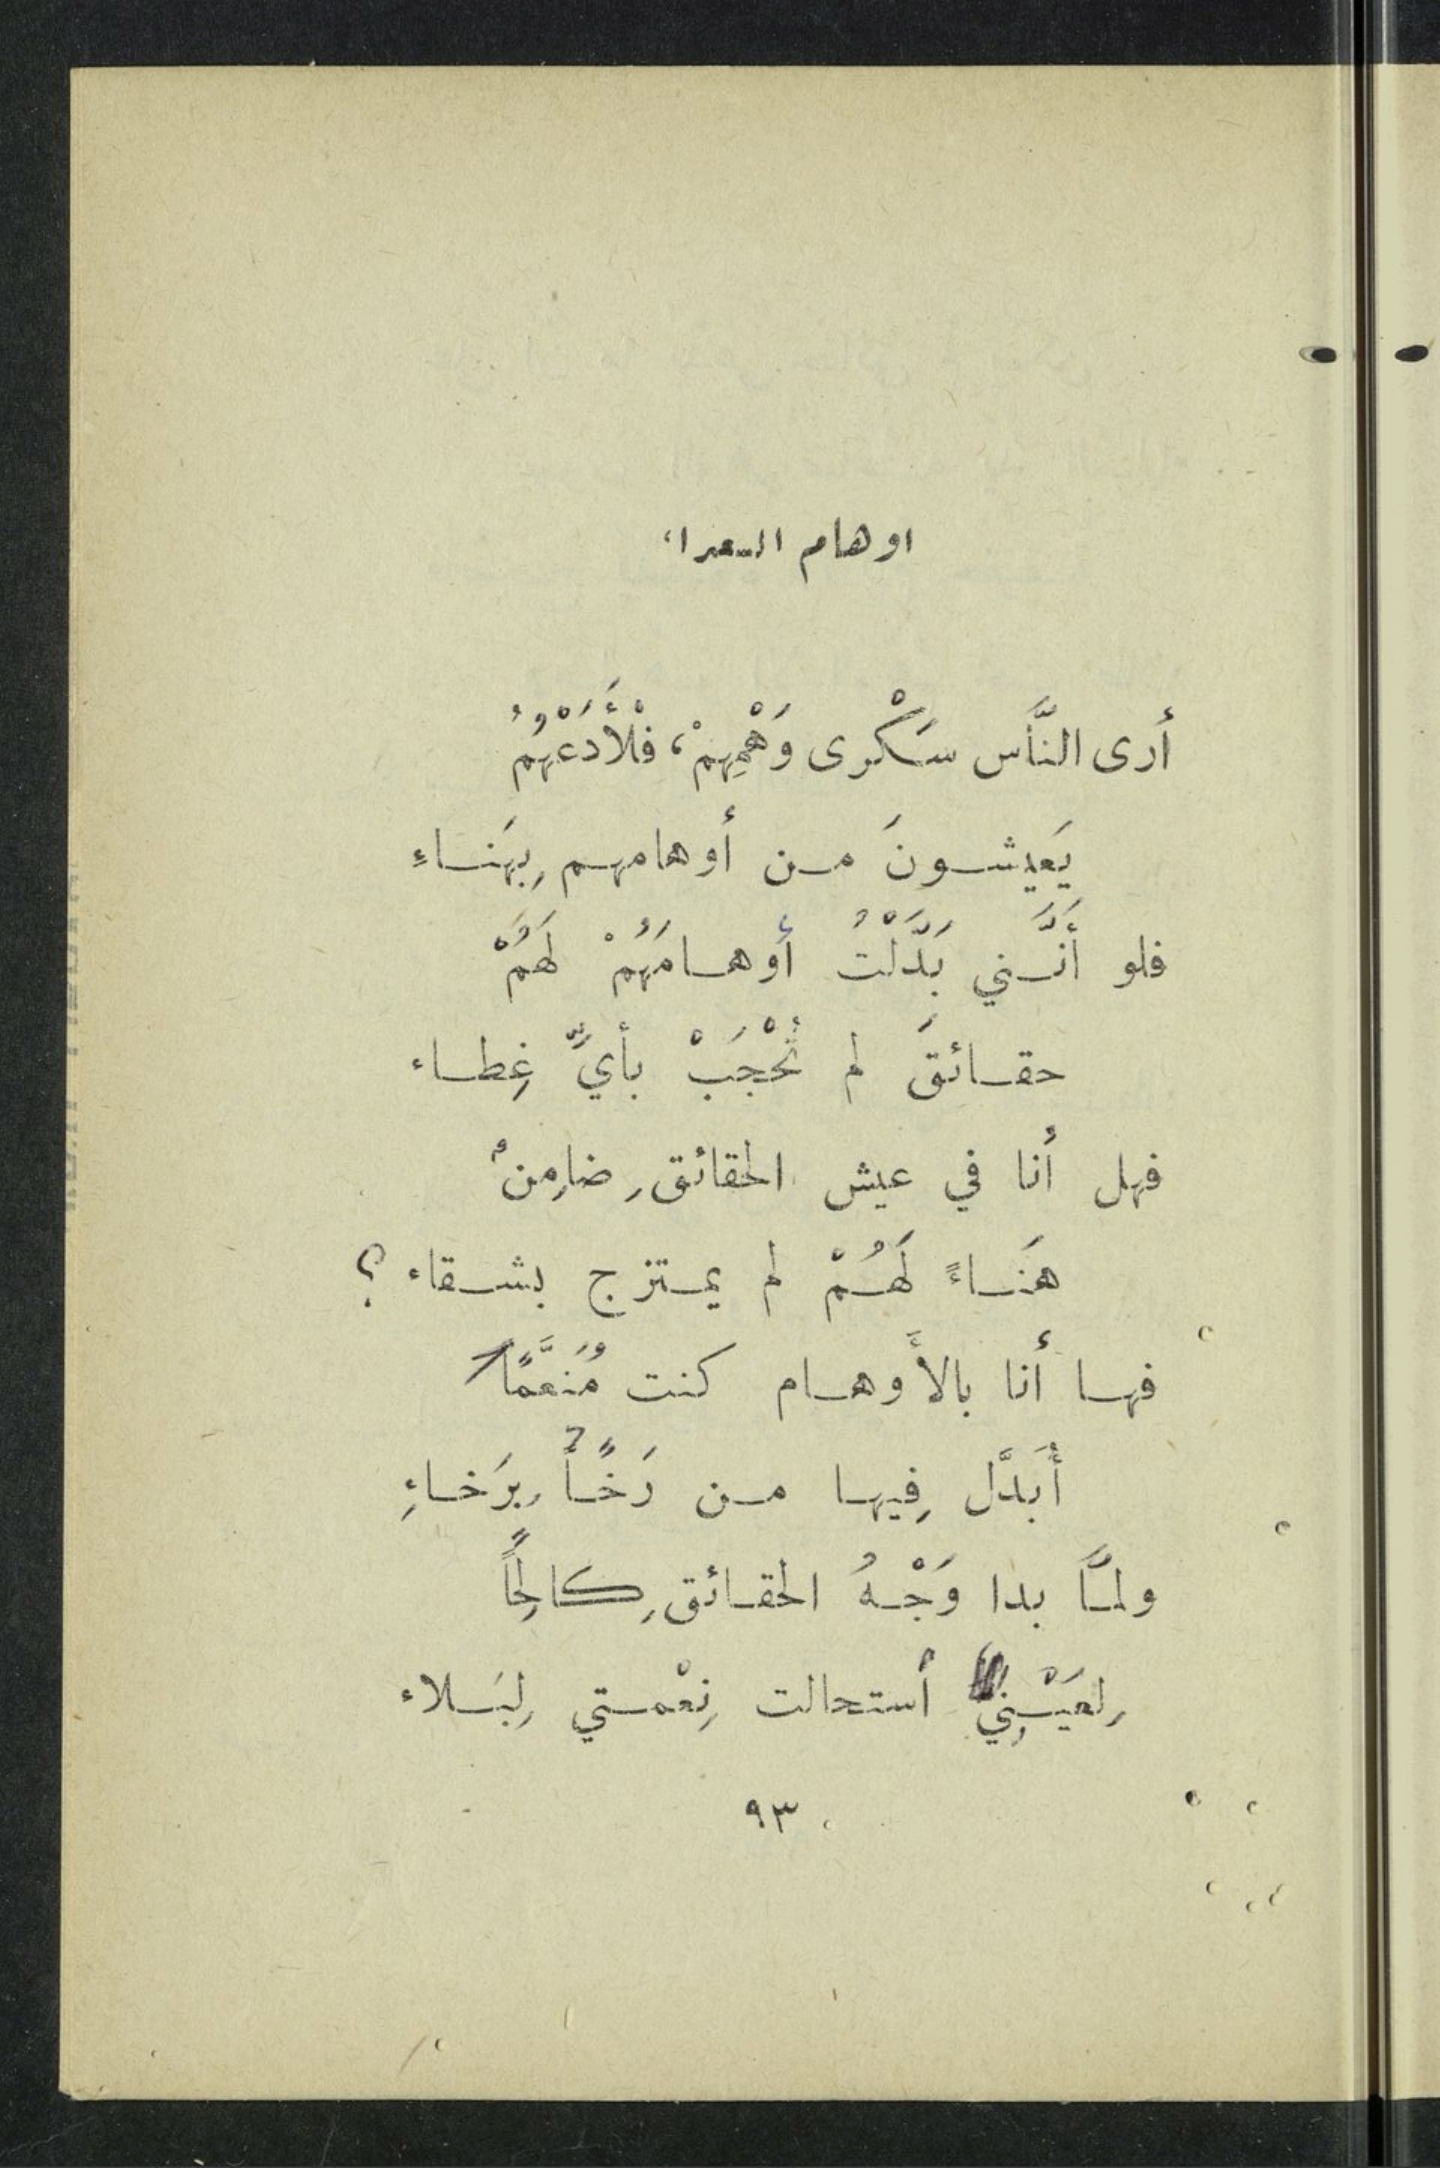 اوهام السعداء
أرى النَّاس سَكْرى وَهْمِهِمْ، فَلْأَدَعْهُمُ
يَعيشونَ من أوهامهم بِهَناءِ
فلو أَنَّني بَدَّلْتُ أوهامَهُمْ لَهُمْ
حقائقَ لم تُحْجَبْ بأيِّ غِطاء
فهل أنا في عيش الحقائقِ ضامِنٌ
هَناءً لَهُمْ لم يمتزج بشقاء ؟
فها أنا بالأَوهام كنت مُنَعَّمًا
أُبَدَّل فِيها من رَخًاْ بِرَخاءِ
ولمَّا بدا وَجْهُ الحقائقِ كالِحًا
لِعَيْنِي أستحالت نِعْمتي لِبَلاء
٩٣